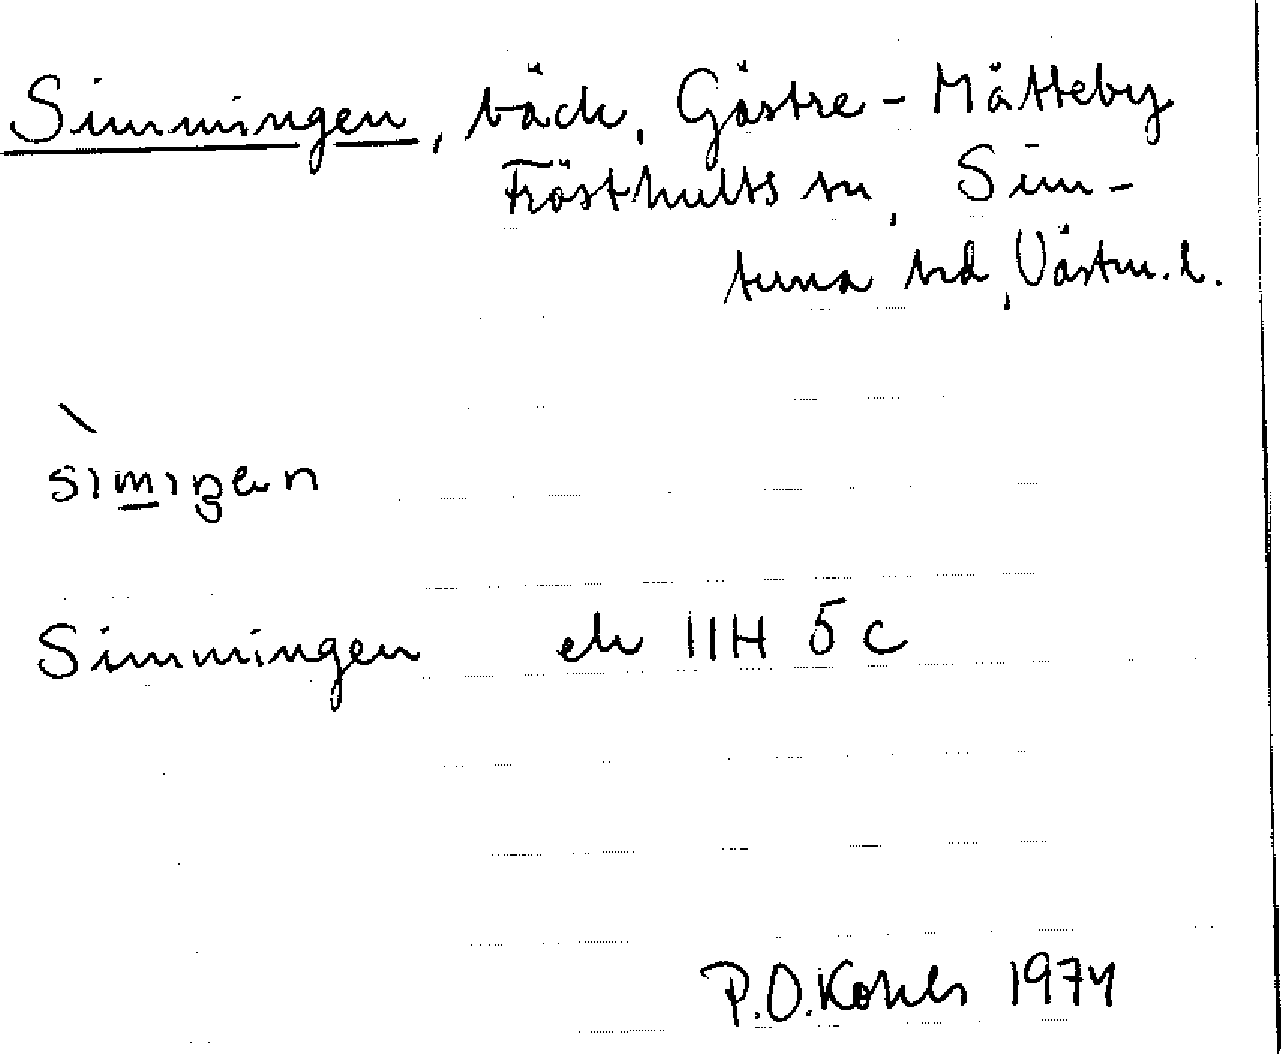 Simmingen, bäck, Gästre - Mätteby
Frösthults sn, Sim-
tuna hd, Västm. l.
simiŋen
Simmingen ek 11H 5 c
P.O. 1974